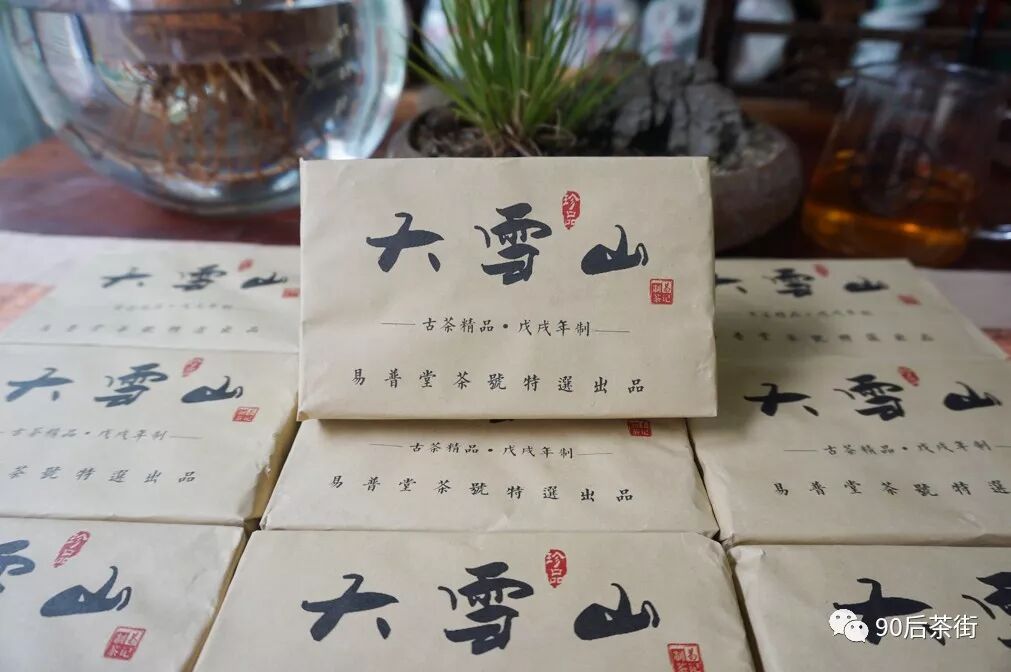 大雪山
珍品
易记制茶
古茶精品·戊戌年制
易普堂茶號特選出品
大雪山
珍品
大雪山
易普堂茶號特選出品
大雪山
珍品
古茶精品·戊戌年制
茶號特選出品
古茶精品·戊戌年制
易普堂茶號特選出品
大雪山
古茶精品·戊戌年制
易普堂茶號特選
雪山
珍品
易记制茶
大雪山
珍品
大雪
90后茶街